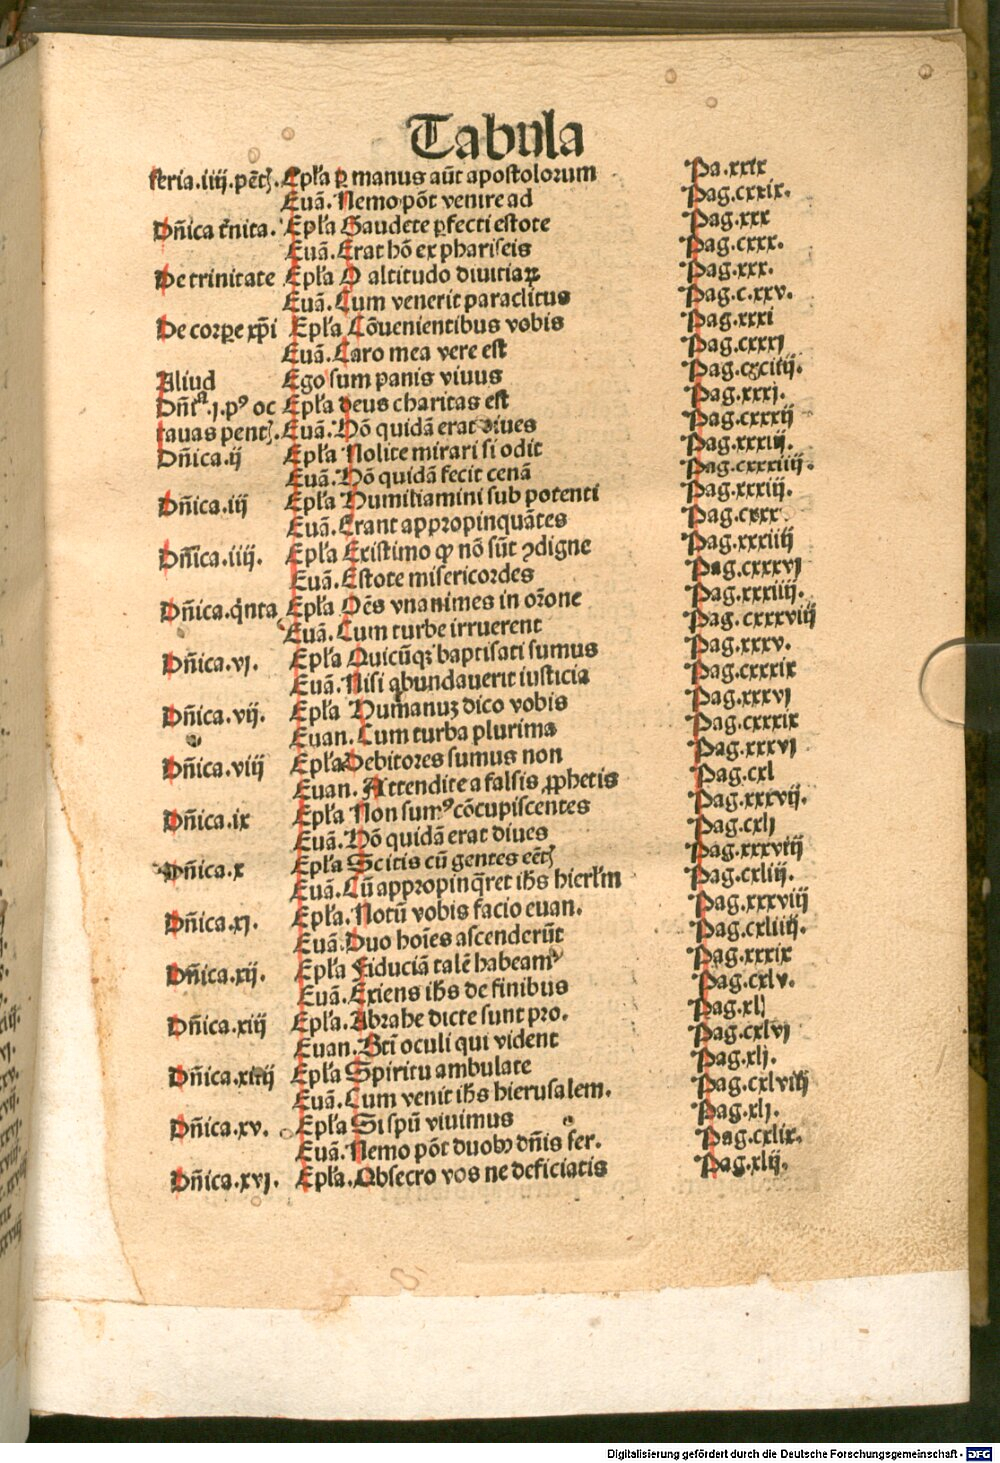 Tabula
feria.iiij.pēt̄. Epl'a ꝑ manus aūt apostolorum Pa.xxix
Euā. Nemo pōt venire ad Pag.cxxix.
Dn̄ica t̄nita. Epl'a Gaudete ꝑfecti estote Pag.xxx
Euā. Erat hō ex phariseis Pag.cxxx.
De trinitate Epl'a O altitudo diuitiaꝝ Pag.xxx.
Euā. Cum venerit paraclitus Pag.c.xxv.
De corꝑe xp̄i Epl'a Cōuenientibus vobis Pag.xxxi
Euā. Caro mea vere est Pag.cxxxj
Aliud Ego sum panis viuus
Dn̄i.j.pꝰ oc Epl'a deus charitas est Pag.xxxj.
tauas pent̄. Euā. Hō quidā erat diues Pag.cxxxij
Dn̄ica.ij Epl'a Nolite mirari si odit Pag.xxxiij.
Euā. Hō quidā fecit cenā Pag.cxxxiiij.
Dn̄ica.iij Epl'a Humiliamini sub potenti Pag.xxxiij.
Euā. Erant appropinquātes Pag.cxxx
Dn̄ica.iiij. Epl'a Existimo ꝙ nō sūt ꝯdigne Pag.xxxiiij
Euā. Estote misericordes Pag.cxxxvj
Dn̄ica.q̇nta Epl'a Oēs vnanimes in or̄one Pag.xxxiiij.
Euā. Cum turbe irruerent Pag.cxxxviij
Dn̄ica.vj. Epl'a Quicūqꝫ baptisati sumus Pag.xxxv.
Euā. Nisi abundauerit iusticia Pag.cxxxix
Dn̄ica.vij. Epl'a Humanuꝫ dico vobis Pag.xxxvj
Euan. Cum turba plurima Pag.cxxxix
Dn̄ica.viij Epl'a Debitores sumus non Pag.xxxvj
Euan. Attendite a falsis ꝓphetis Pag.cxl
Dn̄ica.ix Epl'a Non sumꝰ cōcupiscentes Pag.xxxvij.
Euā. Hō quidā erat diues Pag.cxlj
Dn̄ica.x Epl'a Scitis cū gentes eēt̄ Pag.xxxviij
Euā. Cū appropinq̄ret ihs̄ hierl'm Pag.cxliij.
Dn̄ica.xj. Epl'a. Notū vobis facio euan. Pag.xxxviij
Euā. Duo hoīes ascenderūt Pag.cxliiij.
Dn̄ica.xij. Epl'a Fiduciā talē habeamꝰ Pag.xxxix
Euā. Exiens ihs̄ de finibus Pag.cxlv.
Dn̄ica.xiij Epl'a. Abrahe dicte sunt pro. Pag.xl
Euan. Bt̄i oculi qui vident Pag.cxlvj
Dn̄ica.xiiij Epl'a Spiritu ambulate Pag.xlj.
Euā. Cum venit ihs̄ hierusalem. Pag.cxlviij
Dn̄ica.xv. Epl'a Si spū viuimus Pag.xlj.
Euā. Nemo pōt duobꝰ dn̄is ser. Pag.cxlix.
Dn̄ica.xvj. Epl'a. Obsecro vos ne deficiatis Pag.xlij.
Digitalisierung gefördert durch die Deutsche Forschungsgemeinschaft - DFG